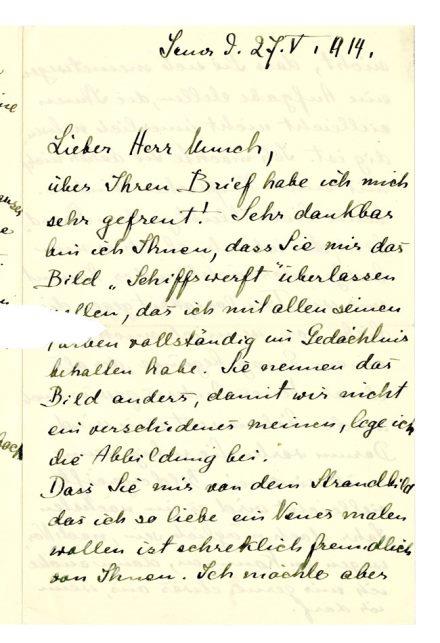 Jena d. 27.V.1914.
Lieber Herr Munch,
über Ihren Brief habe ich mich
sehr gefreut! Sehr dankbar
bin ich Ihnen, dass Sie mir das
Bild „Schiffswerft" überlassen
wollen, das ich mit allen seinen
Farben vollständig im Gedächtnis
behalten habe. Sie nennen das
Bild anders, damit wir nicht
ein verschiedenes meinen, lege ich
die Abbildung bei.
Dass Sie mir von dem Strandbild
das ich so liebe ein Neues malen
wollen ist schrecklich freundlich
von Ihnen. Ich möchte aber